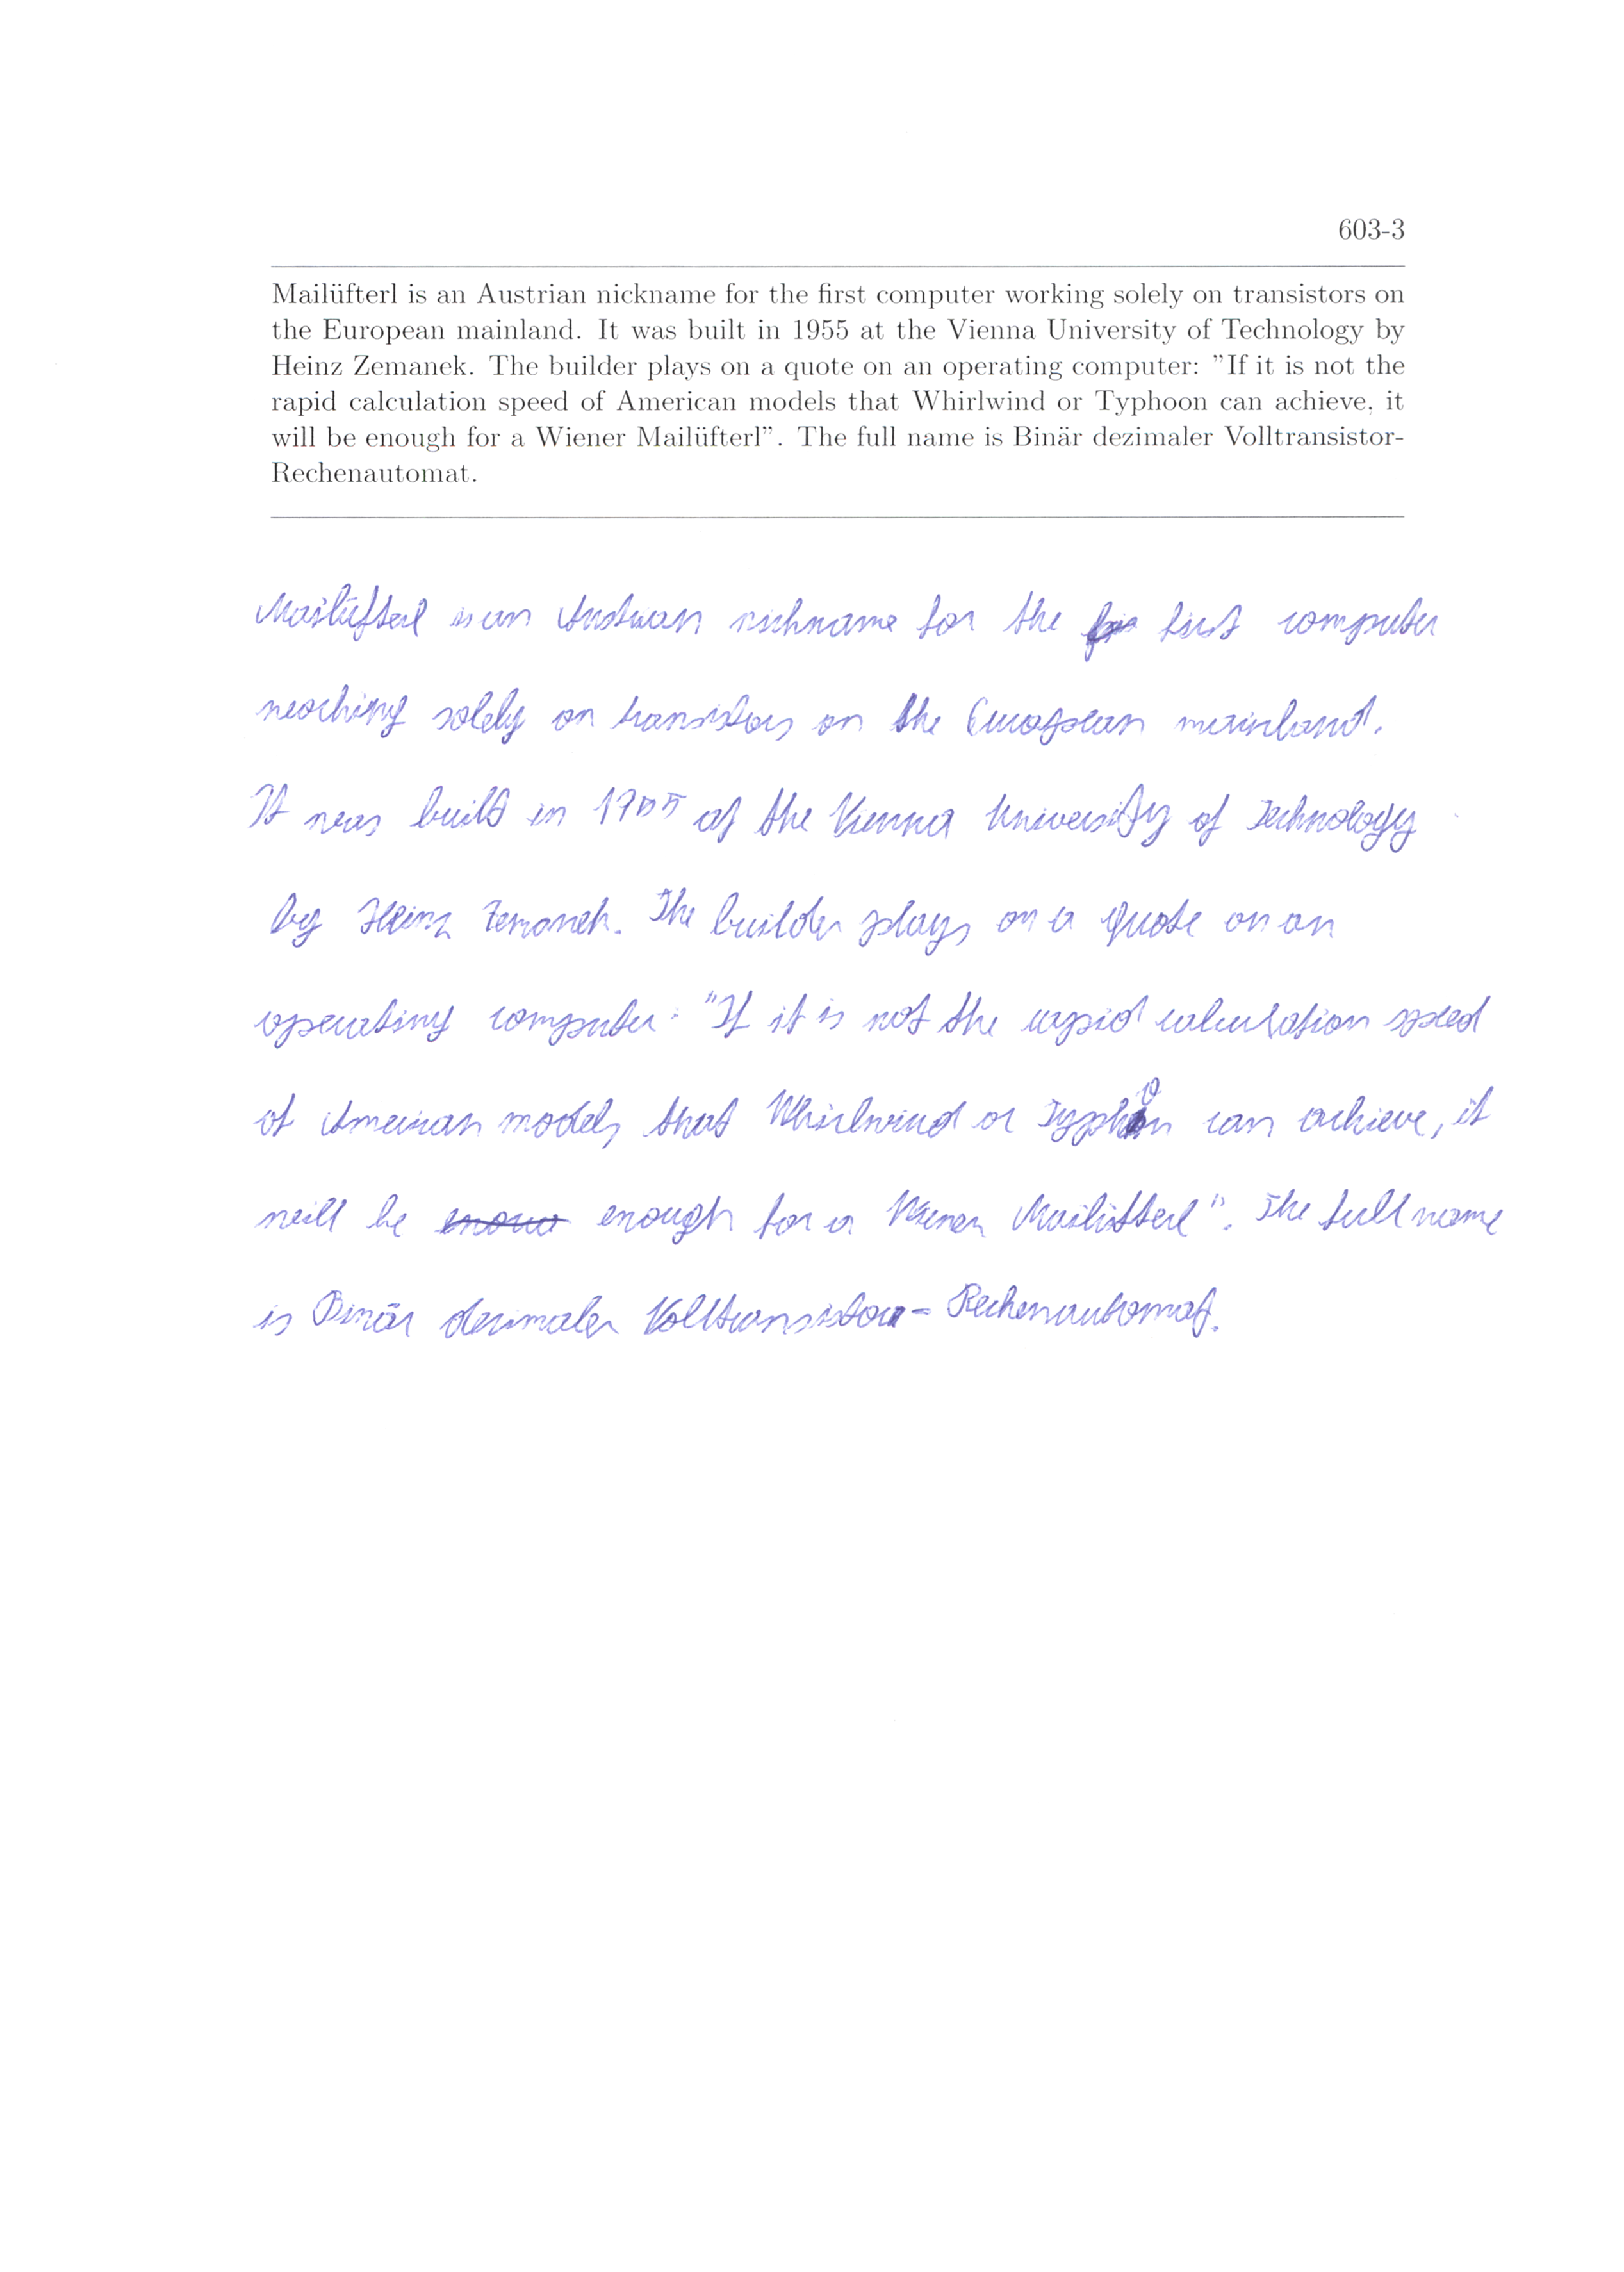 603-3
Mailüfterl is an Austrian nickname for the first computer working solely on transistors on
the European mainland. It was built in 1955 at the Vienna University of Technology by
Heinz Zemanek. The builder plays on a quote on an operating computer: "If it is not the
rapid calculation speed of American models that Whirlwind or Typhoon can achieve, it
will be enough for a Wiener Mailüfterl". The full name is Binär dezimaler Volltransistor-
Rechenautomat.
Mailüfterl is an Austrian nickname for the first computer
working solely on transistors on the European mainland.
It was built in 1955 at the Vienna University of Technology
by Heinz Zemanek. The builder plays on a quote on an
operating computer: "If it is not the rapid calculation speed
of American models that Whirlwind or Typhoon can achieve, it
will be enough for a Wiener Mailüfterl". The full name
is Binär dezimaler Volltransistor-Rechenautomat.